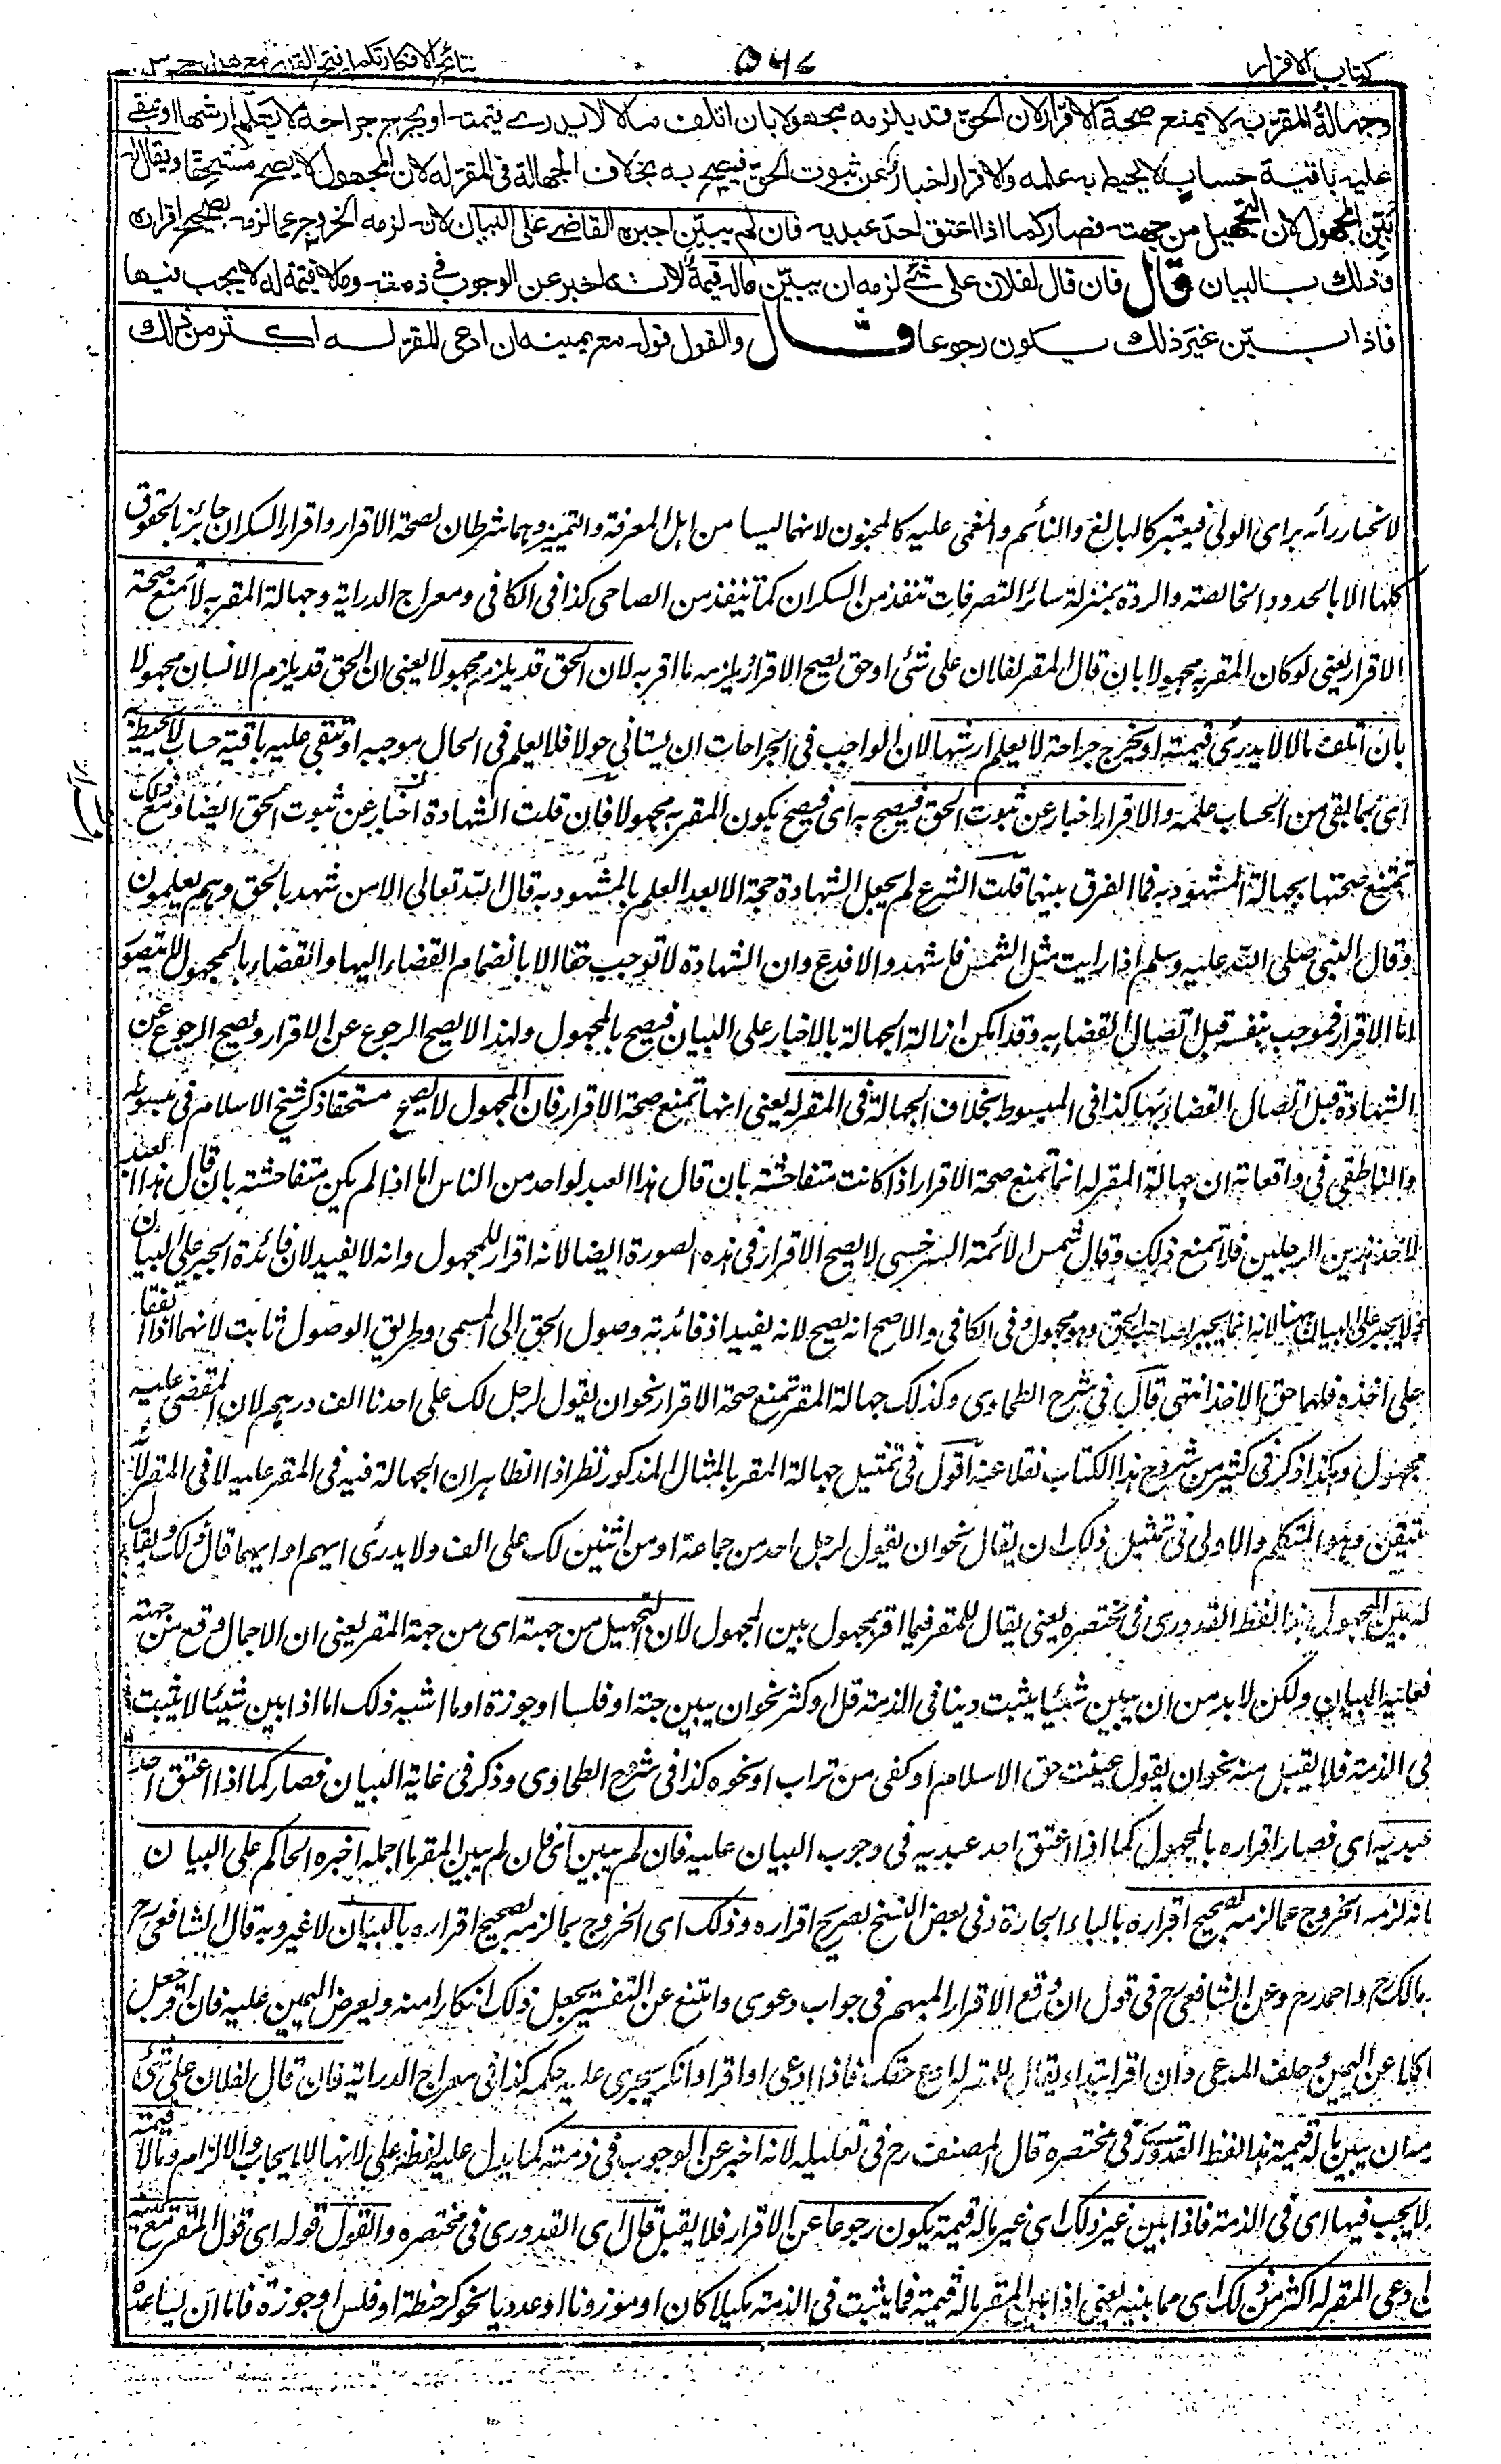 كتاب الاقرار
٥٤٧
نتائج الافكار تكملة فتح القدير مع هدايه ج ٣
وجهالة المقر به لا يمنع صحة الاقرار لان الحق قد يلزمه مجهولا بان اتلف مالا لا يدرى قيمته او يجرح جراحة لا يعلم ارشها او تبقى
عليه باقية حساب لا يحيط به علمه والاقرار اخبار عن ثبوت الحق فيصح به بخلاف الجهالة فى المقر له لان المجهول لا يصح مستحقا ويقال له
بين المجهول لان التجهيل من جهته فصار كما اذا اعتق احد عبديه فان لم يبين اجبره القاضى على البيان لانه لزمه الخروج عما لزمه بصحيح اقراره
وذلك بالبيان قال فان قال لفلان على شئ لزمه ان يبين ماله قيمة لانه اخبر عن الوجوب فى ذمته وما لا قيمة له لا يجب فيها
فاذا بين غير ذلك يكون رجوعا قال والقول قوله مع يمينه ان ادعى المقر له اكثر من ذلك
لانجبار رأيه براى الولى فيعتبر كالبالغ والنائم والمغمى عليه كالمجنون لانهما ليسا من اهل المعرفة والتمييز وهما شرطان لصحة الاقرار واقرار السكران جائز بالحقوق
كلها الا بالحدود الخالصة والردة بمنزلة سائر التصرفات تنفذ من السكران كما تنفذ من الصاحى كذا فى الكافى ومعراج الدراية وجهالة المقر به لا تمنع صحة
الاقرار يعنى لو كان المقر به مجهولا بان قال المقر لفلان على شئى او حق يصح الاقرار ويلزمه ما اقر به لان الحق قد يلزم مجهولا يعنى ان الحق قد يلزم الانسان مجهولا
بان اتلف مالا لا يدرى قيمته او يجرح جراحة لا يعلم ارشها لان الواجب فى الجراحات ان يستانى حولا فلا يعلم فى الحال موجبه او تبقى عليه باقية حساب لا يحيط به
اى بما بقى من الحساب علمه والاقرار اخبار عن ثبوت الحق فيصح به اى فيصح بكون المقر به مجهولا فان قلت الشهادة اخبار عن ثبوت الحق ايضا ومع ذلك
تمتنع صحتها بجهالة المشهود به فما الفرق بينهما قلت الشرع لم يجعل الشهادة حجة الا بعد العلم بالمشهود به قال الله تعالى الا من شهد بالحق وهم يعلمون
وقال النبى صلى الله عليه وسلم اذا رايت مثل الشمس فاشهد والا فدع وان الشهادة لا توجب حقا الا بانضمام القضاء اليها والقضاء بالمجهول لا يتصور
اما الاقرار فموجب بنفسه قبل اتصال القضاء به وقد امكن ازالة الجهالة بالاجبار على البيان فيصح بالمجهول ولهذا لا يصح الرجوع عن الاقرار ويصح الرجوع عن
الشهادة قبل اتصال القضاء بها كذا فى المبسوط بخلاف الجهالة فى المقر له يعنى انها تمنع صحة الاقرار فان المجهول لا يصح مستحقا ذكر شيخ الاسلام فى مبسوطه
والناطفى فى واقعاته ان جهالة المقر له انما تمنع صحة الاقرار اذا كانت متفاحشة بان قال هذا العبد لواحد من الناس اما اذا لم يكن متفاحشة بان قال هذا العبد
لاحد هذين الرجلين فلا تمنع ذلك وقال شمس الائمة السرخسى لا يصح الاقرار فى هذه الصورة ايضا لانه اقرار للمجهول وانه لا يفيد لان فائدة الجبر على البيان
ولا يجبر على البيان ههنا لانه انما يجبر لصاحب الحق وهو مجهول وفى الكافى والاصح انه يصح لانه يفيد اذ فائدته وصول الحق الى المستحق وطريق الوصول ثابت لانهما اذا اتفقا
على اخذه فلهما حق الاخذ انتهى قال فى شرح الطحاوى وكذلك جهالة المقر تمنع صحة الاقرار نحو ان يقول لرجل لك على احدنا الف درهم لان المقضى عليه
مجهول وهكذا ذكر فى كثير من شروح هذا الكتاب نقلا عنه اقول فى تمثيل جهالة المقر بالمثال المذكور نظر اذ الظاهر ان الجهالة فيه فى المقر عليه لا فى المقر لانه
متيقن وهو المتكلم والاولى فى تمثيل ذلك ان يقال نحو ان يقول لرجل احد من جماعة او من اثنين لك على الف ولا يدرى ايهم او ايهما قال ذلك ويقال
له بين المجهول هذا لفظ القدورى فى مختصره يعنى يقال للمقر فيما اقر بمجهول بين المجهول لان التجهيل من جهته اى من جهة المقر يعنى ان الاجمال وقع من جهته
فعليه البيان ولكن لا بد من ان يبين شيئا يثبت دينا فى الذمة قل او كثر نحو ان يبين حبة او فلسا او جوزة او ما اشبه ذلك اما اذا بين شيئا لا يثبت
فى الذمة فلا يقبل منه نحو ان يقول عنيت حق الاسلام او كفى من تراب او نحوه كذا فى شرح الطحاوى وذكر فى غاية البيان فصار كما اذا اعتق احد
عبديه اى فصار اقراره بالمجهول كما اذا اعتق احد عبديه فى وجوب البيان عليه فان لم يبين اى فان لم يبين المقر ما اجمله اجبره الحاكم على البيان
لانه لزمه الخروج عما لزمه بصحيح اقراره بالباء الجارة وفى بعض النسخ بصريح اقراره وذلك اى الخروج عما لزمه بصحيح اقراره بالبيان لا غير وبه قال الشافعى رح
ومالك رح واحمد رح وعن الشافعى رح فى قول ان وقع الاقرار المبهم فى جواب دعوى وامتنع عن التفسير يجعل ذلك انكارا منه ويعرض اليمين عليه فان اصر جعل
ناكلا عن اليمين وحلف المدعى وان اقر ابتداء يقال للمقر له ادع حقك فاذا ادعى او اقر او انكر يجرى عليه حكمه كذا فى معراج الدراية فان قال لفلان على شئ
لزمه ان يبين ما له قيمة هذا لفظ القدورى فى مختصره قال المصنف رح فى تعليله لانه اخبر عن الوجوب فى ذمته كما يدل عليه لفظه على لانها للايجاب والالزام وما لا قيمة له
لا يجب فيها اى فى الذمة فاذا بين غير ذلك اى غير ما له قيمة يكون رجوعا عن الاقرار فلا يقبل قال اى القدورى فى مختصره والقول قوله اى قول المقر مع يمينه
ان ادعى المقر له اكثر من ذلك اى مما بينه يعنى اذا بين المقر ما له قيمة فما يثبت فى الذمة مكيلا كان او موزونا او عدديا نحو كر حنطة او فلس او جوزة فاما ان يساعده